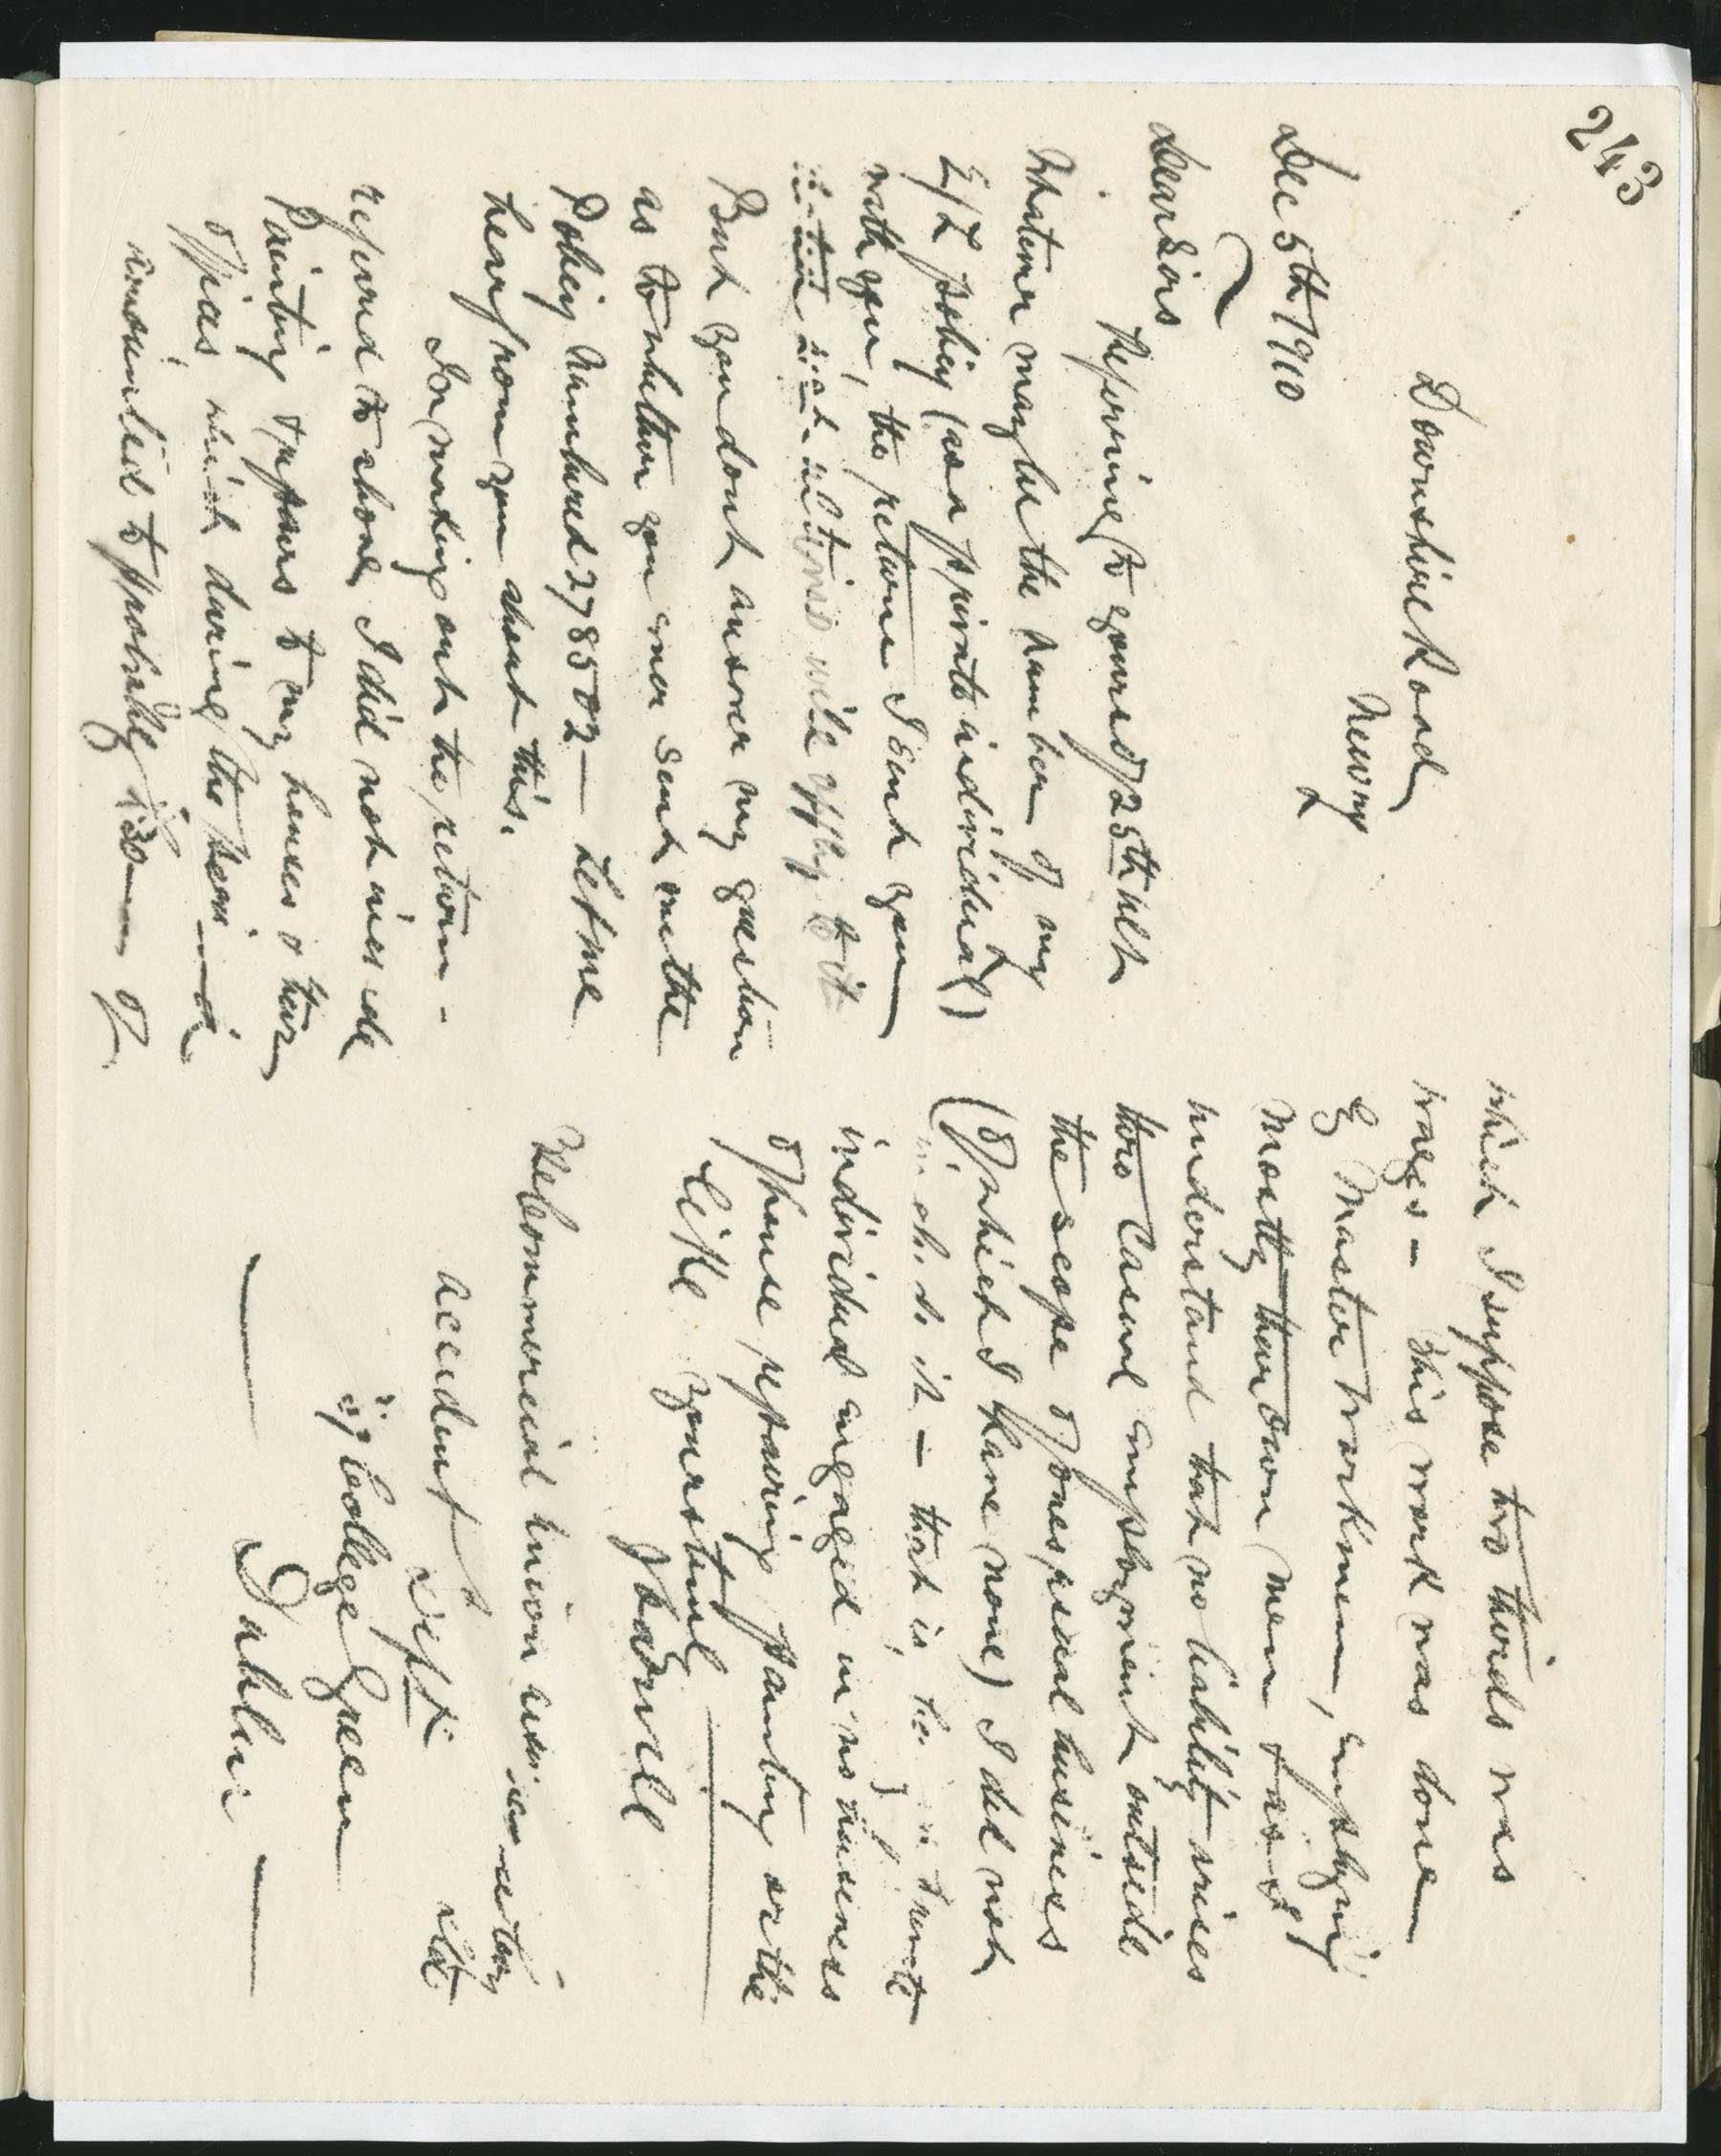 243
Downshire Road
Newry
Dec 5th 1910
Dear Sirs
Referring to yours of 25th ult
Whatever may be the number of my
E/L policy (as a private individual)
with you, the return I sent you
will apply to it
But you dont answer my question
as to whether you ever sent me the
Policy numbered 2798502 — Let me
hear from you about this.
In making out the return -
referred to above, I did not include
Painting & repairs to my houses & those
offices which during the year
amounted to probably £30 — of
which I suppose two thirds was
wages - This work was done
by Master Workmen, employing
mostly their own men & as I
understand that no liability arises
thro Casual employment outside
the scope of ones usual business
(of which I have none) I did not
include it - that is, for a private
individual engaged in no business
of house repairing painting or the
like
Yours truly
J Bagwell
The Commercial Union Assurance
Accident Dept
College Green
Dublin